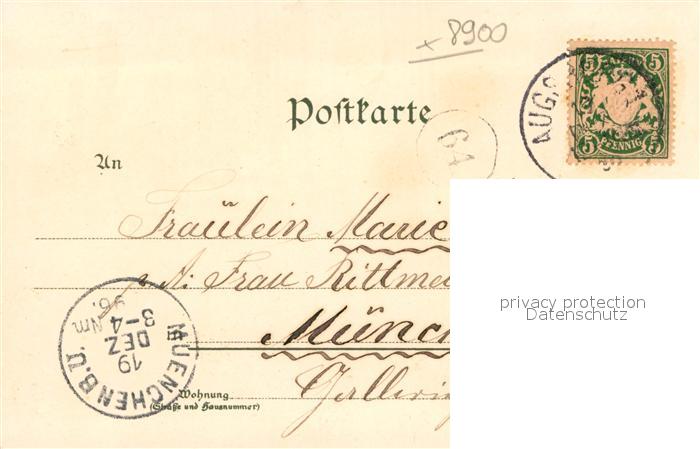 x 8900
5 5
5 PFENNIG 5
AUGS
Postkarte
64
An
Fräulein Marie
p. A. Frau Rittme
in Münc
MUENCHEN B.U.
19
DEZ
3-4
Nm.
96.
Wohnung
(Straße und Hausnummer)
privacy protection
Datenschutz